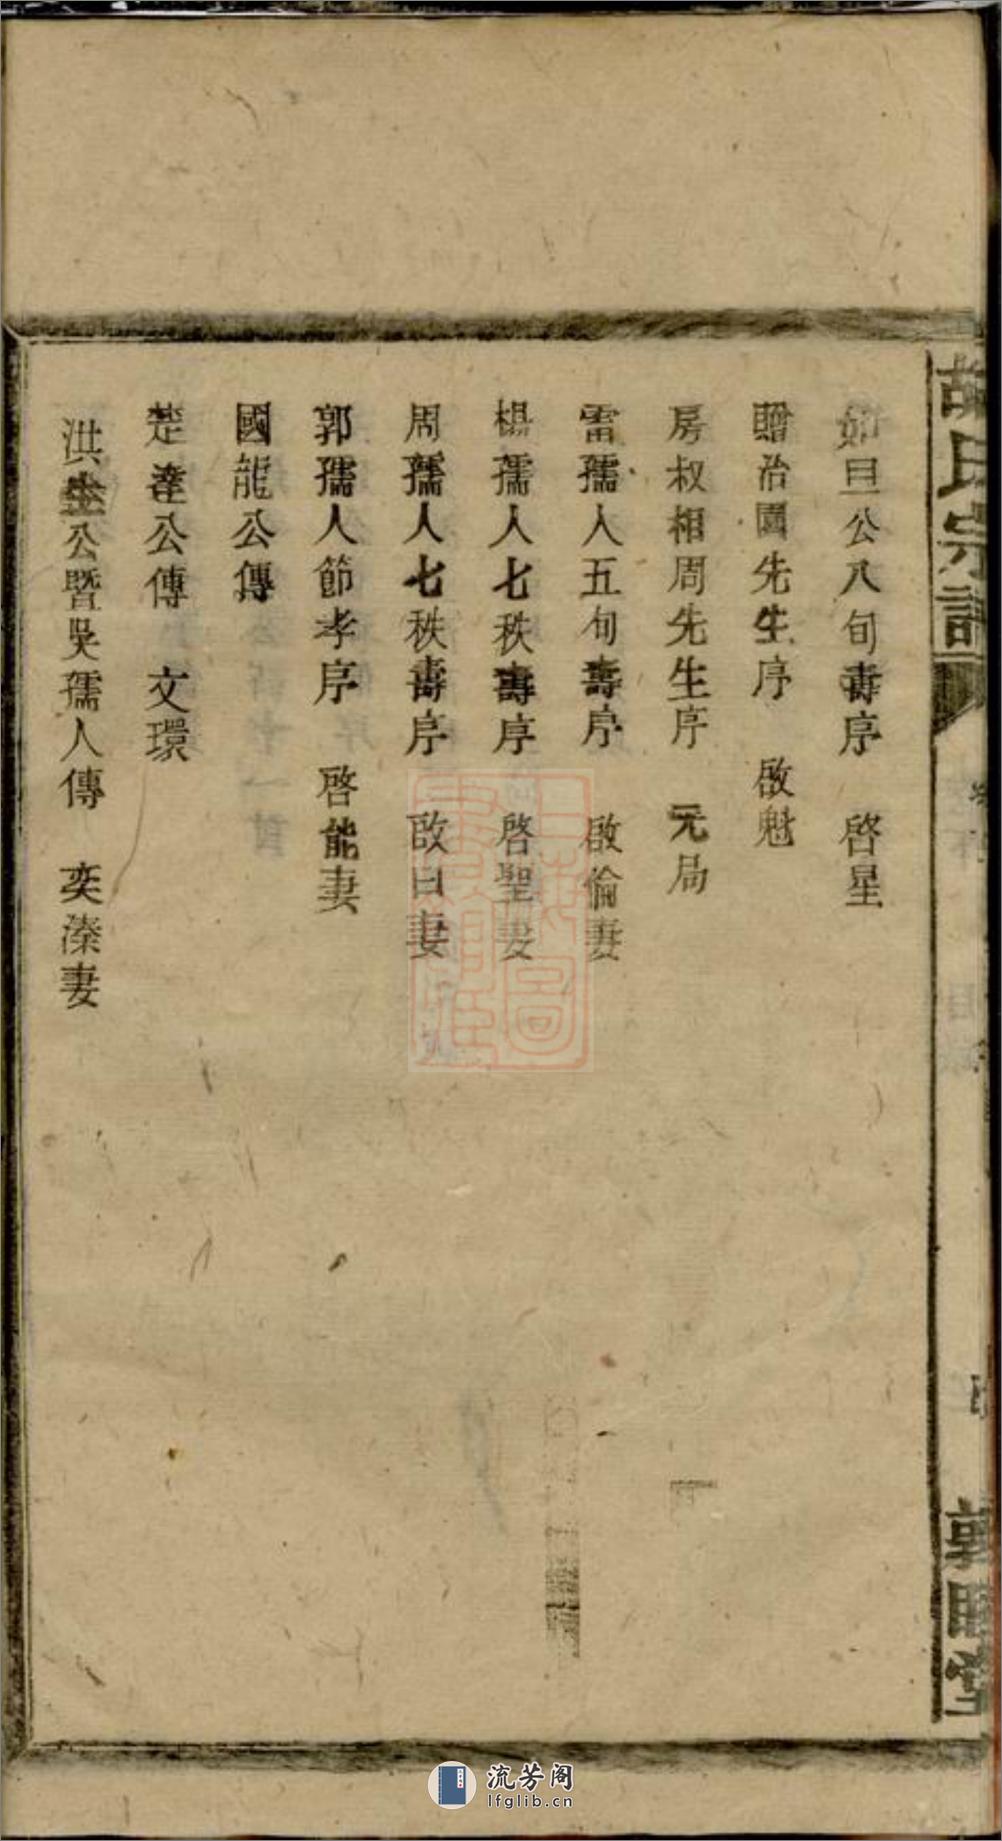 如旦公八旬壽序 啓星
贈治園先生序 啟魁
房叔相周先生序 元局
雷孺人五旬壽序 啟倫妻
楊孺人七秩壽序 啓聖妻
周孺人七秩壽序 啟曰妻
郭孺人節孝序 啓能妻
國龍公傳
楚奎公傳 文環
洪奎公暨吳孺人傳 奕溱妻
胡氏宗譜
敦睦堂
流芳阁
lfglib.cn